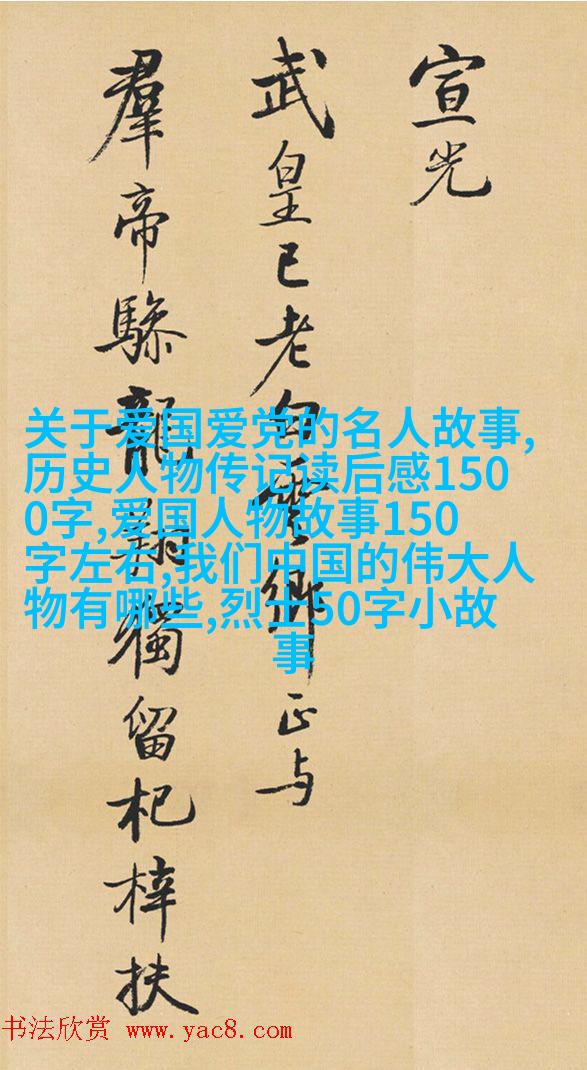 宣光
武皇已老白雲鄉正与
羣帝驂龍翔獨留杞梓扶
关于爱国爱党的名人故事,
历史人物传记读后感150
0字,爱国人物故事150
字左右,我们中国的伟大人
物有哪些,烈士50字小故
事
书法欣赏 www.yac8.com